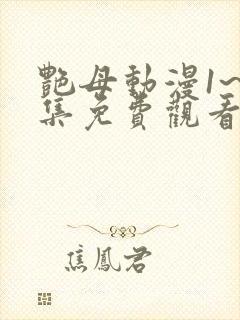 艷母動漫1~
集免費觀看
焦鳳君